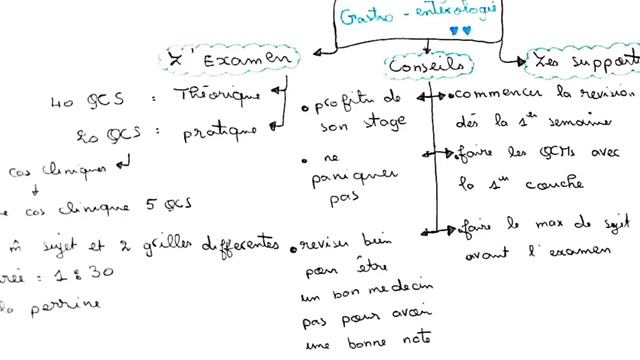 Gastro-entérologie
L'Examen
Conseils
Les support
40 QCS : Théorique
20 QCS : pratique
cas cliniques
cas clinique 5 QCS
m̂ sujet et 2 grilles differentes
rée : 1 h 30
la perrine
• profiter de
son stage
• ne
paniquer
pas
• reviser bien
pour être
un bon medecin
pas pour avoir
une bonne note
• commencer la revision
dés la 1ère semaine
• faire les QCMs avec
la 1ère couche
• faire le max de sujet
avant l'examen